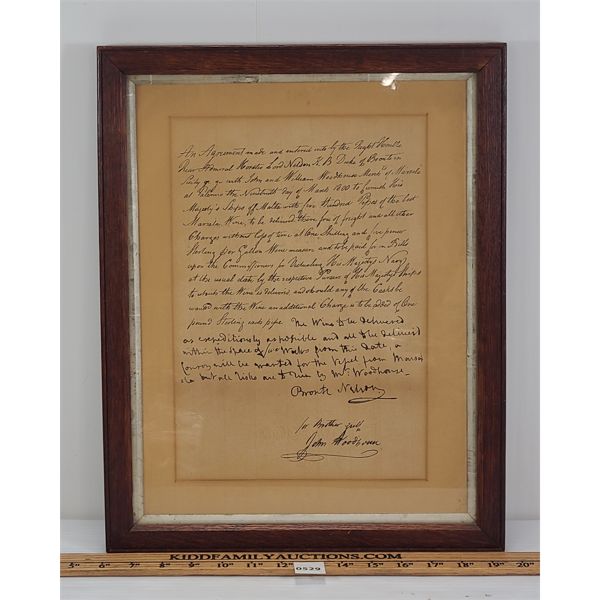 An Agreement made and entered into by the Right Honble
Rear Admiral Horatio Lord Nelson K. B. Duke of Bronte in
Sicily with John and William Woodhouse Merchts of Marsala
at Palermo the Nineteenth day of March 1800 to furnish His
Majesty's Ships off Malta with five Hundred Pipes of the best
Marsala Wine, to be delivered there free of freight and all other
Charges without loss of time at One Shilling and five pence
Sterling per Gallon Wine measure, and to be paid for in Bills
upon the Commissioners for Victualling His Majesty's Navy
at the usual date by the respective Pursers of His Majesty's Ships
to whom the Wine is delivered, and should any of the Casks be
wanted with the Wine an additional Charge is to be added of One
pound Sterling each pipe. The Wine to be delivered
as expeditiously as possible and all to be delivered
within the space of Weeks from this date, a
Convoy will be granted for the Vessel from Marsa
la but all risks are to run by Mr. Woodhouse—
Bronte Nelson
for Brother self
John Woodhouse
KIDDFAMILYAUCTIONS.COM
5" 6" 7" 8" 9" 10" 11" 12" 0529 14" 15" 16" 17" 18" 19" 20"